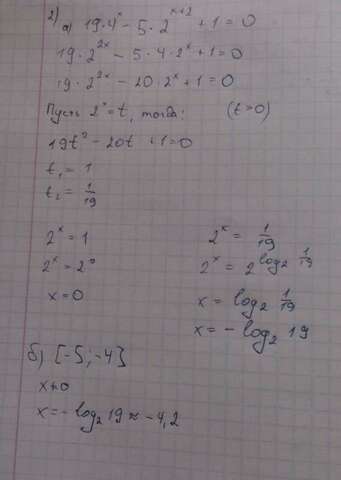 2)
а) 19·4ˣ - 5·2ˣ⁺² + 1 = 0
19·2²ˣ - 5·4·2ˣ + 1 = 0
19·2²ˣ - 20·2ˣ + 1 = 0
Пусть 2ˣ = t, тогда: (t > 0)
19t² - 20t + 1 = 0
t₁ = 1
t₂ = 1/19
2ˣ = 1
2ˣ = 2⁰
x = 0
2ˣ = 1/19
2ˣ = 2^(log₂ 1/19)
x = log₂ 1/19
x = - log₂ 19
б) [-5; -4]
x ≠ 0
x = - log₂ 19 ≈ -4,2